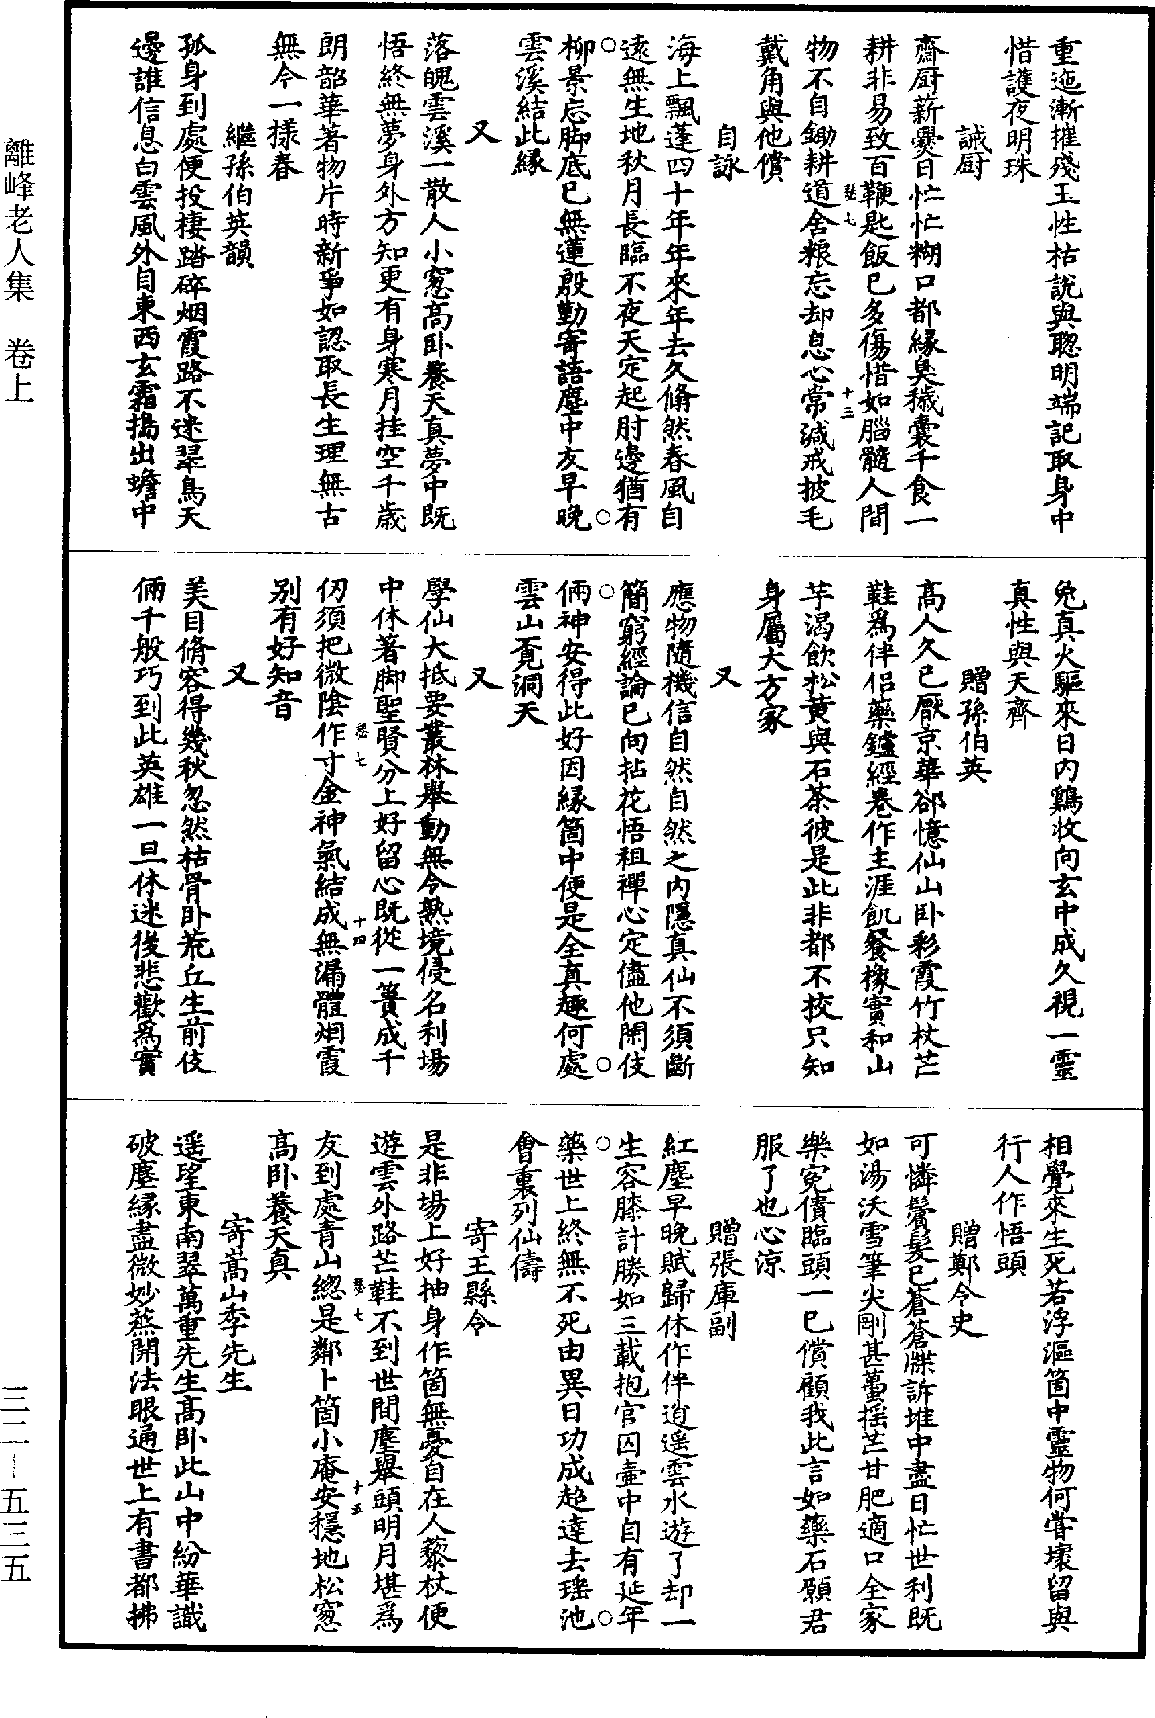 重迤漸摧殘玉性枯說與聰明端記取身中
惜護夜明珠
誡厨
齋厨薪爨日忙忙糊口都緣臭穢囊千食一
耕非易致百鞭匙飯已多傷惜如腦髓人間
物不自鋤耕道舍粮忘却息心常減戒披毛
戴角與他償
自詠
海上飄蓬四十年年來年去久翛然春風自
遠無生地秋月長臨不夜天定起肘邊猶有
柳景忘脚底已無蓮殷勤寄語塵中友早晚
雲溪結此緣
又
落魄雲溪一散人小窓高卧養天真夢中既
悟終無夢身外方知更有身寒月挂空千歲
朗韶華著物片時新爭如認取長生理無古
無今一樣春
繼孫伯英韻
孤身到處便投棲踏碎烟霞路不迷翠鳥天
邊誰信息白雲風外自東西玄霜搗出蟾中
兔真火驅來日內鷄收向玄中成久視一靈
真性與天齊
贈孫伯英
高人久已厭京華郤憶仙山卧彩霞竹杖芒
鞋爲伴侣藥鑪經卷作生涯飢餐橡實和山
芋渴飲松黄與石茶彼是此非都不挍只知
身屬大方家
又
應物隨機信自然自然之內隱真仙不須斷
簡窮經論已向拈花悟祖禪心定儘他閑伎
倆神安得此好因緣箇中便是全真趣何處
雲山覓洞天
又
學仙大抵要叢林舉動無令熟境侵名利場
中休著脚聖賢分上好留心既從一簣成千
仞須把微陰作寸金神氣結成無漏體烟霞
别有好知音
又
美目脩容得幾秋忽然枯骨卧荒丘生前伎
倆千般巧到此英雄一旦休迷後悲歡爲實
相覺來生死若浮漚箇中靈物何嘗壞留與
行人作悟頭
贈鄭令史
可憐鬢髮已蒼蒼牒訴堆中盡日忙世利既
如湯沃雪筆尖剛甚蠆揺芒甘肥適口全家
樂寃債臨頭一已償顧我此言如藥石願君
服了也心涼
贈張庫副
紅塵早晚賦歸休作伴逍遥雲水遊了却一
生容膝計勝如三載抱官囚壷中自有延年
藥世上終無不死由異日功成超達去瑤池
會裏列仙儔
寄王縣令
是非場上好抽身作箇無憂自在人藜杖便
遊雲外路芒鞋不到世間塵舉頭明月堪爲
友到處青山總是鄰卜箇小庵安穩地松窓
高卧養天真
寄嵩山李先生
遥望東南翠萬重先生高卧此山中紛華識
破塵緣盡微妙叅開法眼通世上有書都拂
離峰老人集　卷上
三二—五三五